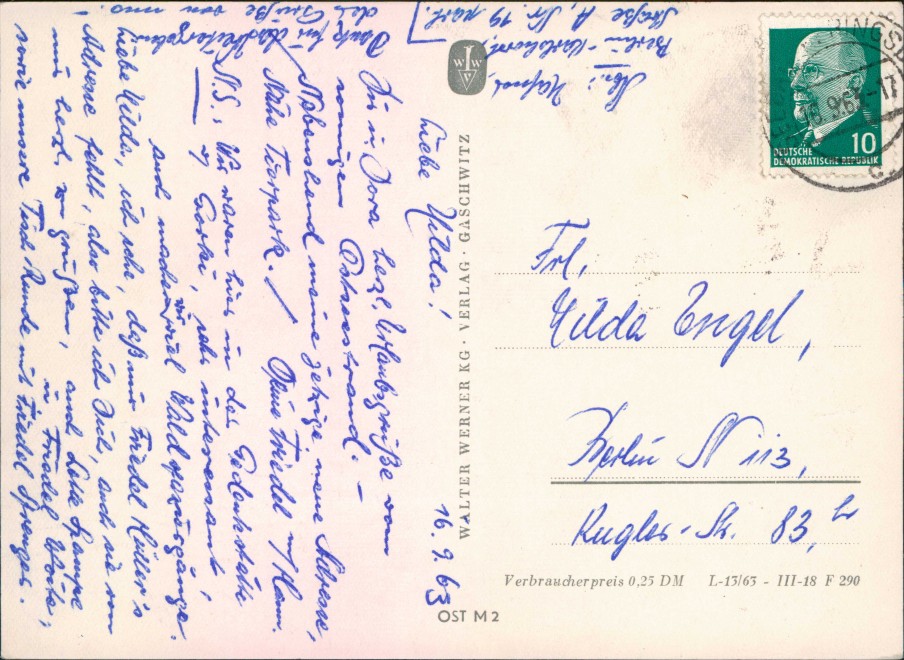 16. 9. 63
Liebe Hilda!
Dir u. Dora herzl. Urlaubsgrüße vom
sonnigen Ostseestrand. –
Nebenstehend meine jetzige neue Adresse,
/Nähe Tierpark./ Deine Friedel u/Hann.
N.S.: Wir waren hier in der Gedenkstätte
v. Gorki, sehr interessant,
und machen viel Waldspaziergänge.
Liebe Hilda, ich sehe, daß mir Friedel Müller's
Adresse fehlt, also bitte ich Dich, auch sie von
mir herzl. zu grüßen, auch Lotte
sowie unsere Tisch-Runde mit Friedel
Danke für das Weitergeben
der Grüße von uns!
Abs.:
Berlin-Karlshorst,
Straße A, Nr. 19 part.
WALTER WERNER KG · VERLAG · GASCHWITZ
W I W
V
10
DEUTSCHE
DEMOKRATISCHE REPUBLIK
Frl.
Hilda Engel,
Berlin N 113,
Kugler-Str. 83,
Verbraucherpreis 0,25 DM L-13/63 - III-18 F 290
OST M 2